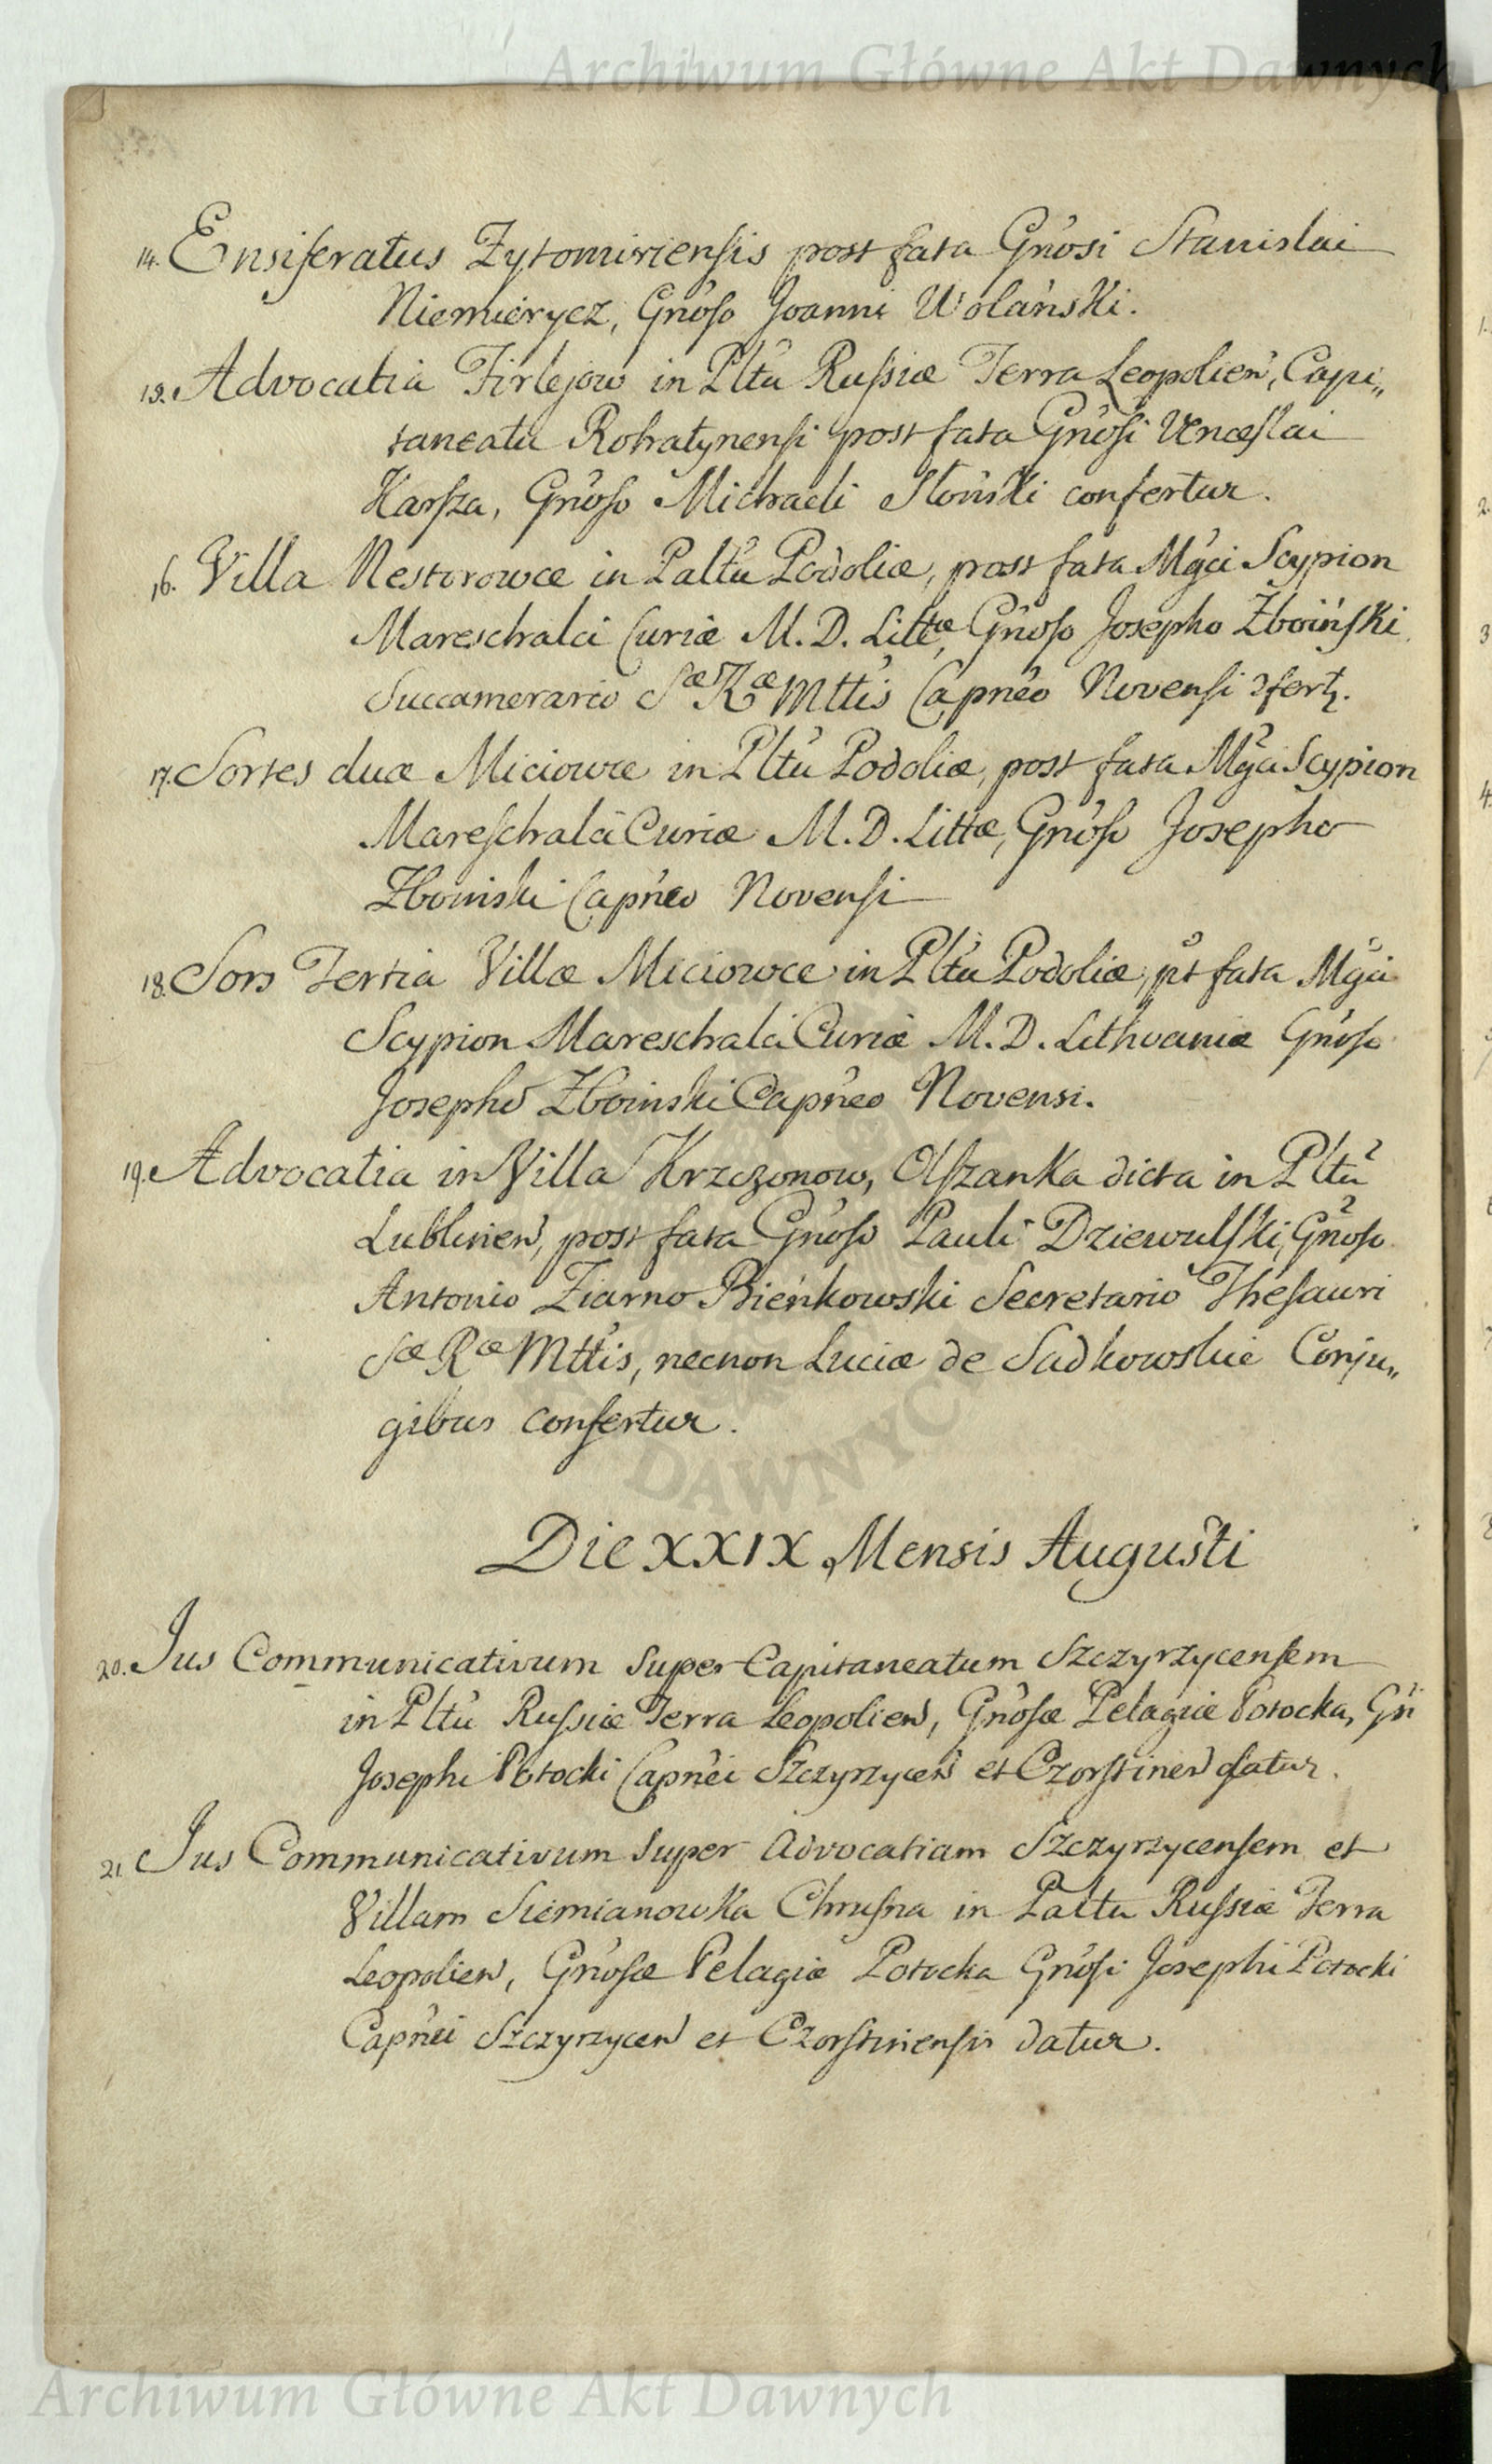 Archiwum Główne Akt Dawnych
14. Ensiferatus Zytomiriensis post fata Gnosi Stanislai
Niemierycz, Gnoso Joanni Wolański.
15. Advocatia Firlejow in Pltu Russiæ Terra Leopolien, Capi„
taneatu Rohatynensi post fata Gnosi Venceslai
Karsza, Gnoso Michaeli Słoński confertur.
16. Villa Nestorowce in Paltu Podoliæ, post fata Mgci Scypion
Mareschalci Curiæ M. D. Littæ, Gnoso Josepho Zboiński
Succamerario Sæ Ræ Mttis Capneo Novensi
17. Sortes duæ Miciowce in Pltu Podoliæ, post fata Mgci Scypion
Mareschalci Curiæ M. D. Littæ, Gnoso Josepho
Zboinski Capneo Novensi
18. Sors Tertia Villæ Miciowce in Pltu Podoliæ, pt fata Mgci
Scypion Mareschalci Curiæ M. D. Lithvaniæ Gnoso
Josepho Zboinski Capneo Novensi.
19. Advocatia in Villa Krzczonow, Olszanka dicta in Pltu
Lublinen, post fata Gnoso Pauli Dziewulski, Gnoso
Antonio Ziarno Bieńkowski Secretario Thesauri
Sæ Ræ Mttis, necnon Luciæ de Sadkowskie Conju„
gibus confertur.
DAWNYCH
Die XXIX Mensis Augusti
20. Jus Communicativum super Capitaneatum Szczyrzycensem
in Pltu Russiæ Terra Leopolien, Gnosæ Pelagiæ Potocka, Gni
Josephi Potocki Capnei Szczyrzycen et Czorstinen datur.
21. Jus Communicativum super Advocatiam Szczyrzycensem et
Villam Siemianowka Chrusna in Paltu Russiæ Terra
Leopolien, Gnosæ Pelagiæ Potocka Gnosi Josephi Potocki
Capnei Szczyrzycen et Czorstinensis datur.
Archiwum Główne Akt Dawnych